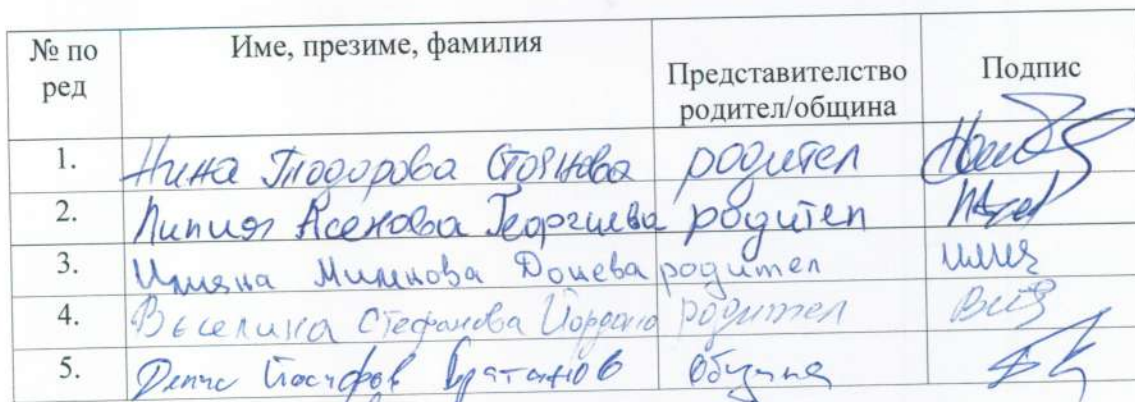 № по ред Име, презиме, фамилия Представителство родител/община Подпис
1. Нина Тодорова Стоянова родител
2. Лилия Асенова Георгиева родител
3. Илияна Милкова Донева родител
4. Веселина Стефанова Йордано родител
5. Денис Йосифов община